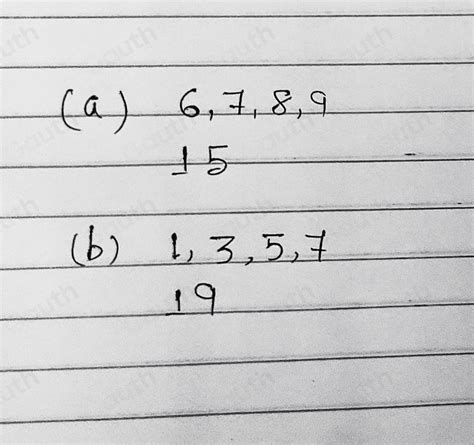 (a) 6, 7, 8, 9
15
(b) 1, 3, 5, 7
19